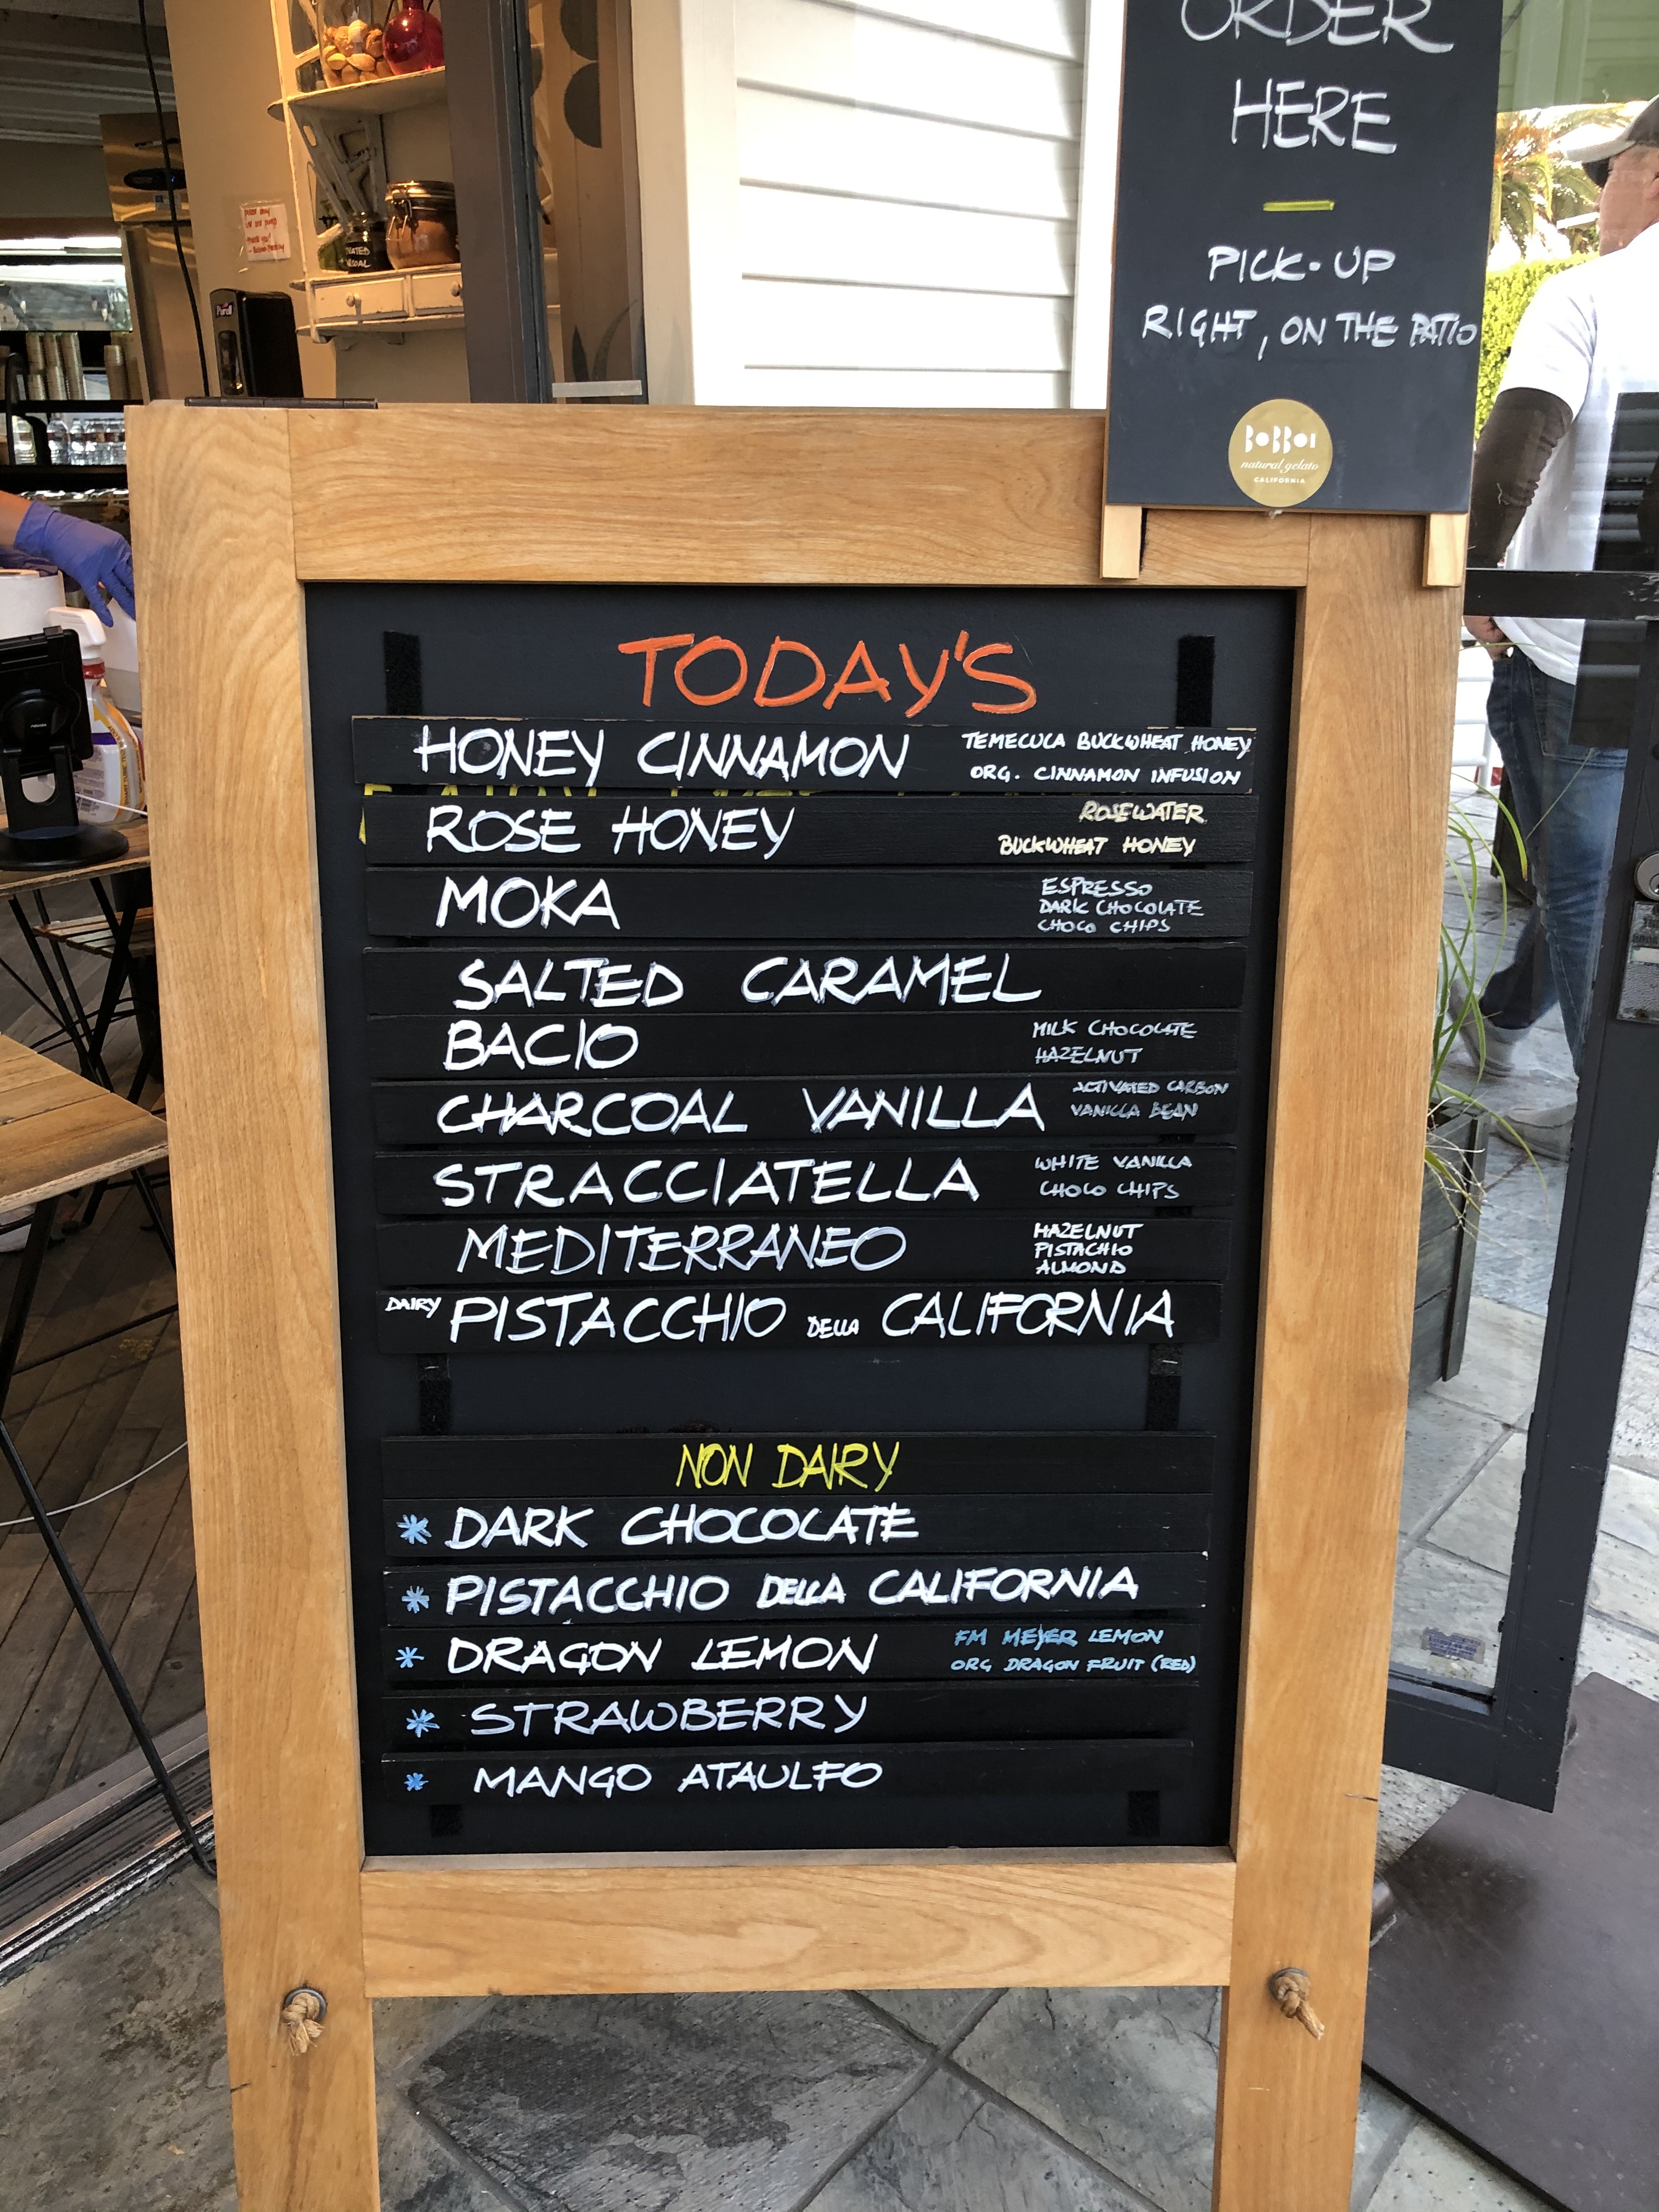 ORDER
HERE
PICK-UP
RIGHT, ON THE PATIO
BOBBOI
natural gelato
CALIFORNIA
Purell
TODAY'S
HONEY CINNAMON
TEMECULA BUCKWHEAT HONEY
ORG. CINNAMON INFUSION
ROSE HONEY
ROSEWATER
BUCKWHEAT HONEY
MOKA
ESPRESSO
DARK CHOCOLATE
CHOCO CHIPS
SALTED CARAMEL
BACIO
MILK CHOCOLATE
HAZELNUT
CHARCOAL VANILLA
ACTIVATED CARBON
VANILLA BEAN
STRACCIATELLA
WHITE VANILLA
CHOCO CHIPS
MEDITERRANEO
HAZELNUT
PISTACHIO
ALMOND
DAIRY PISTACCHIO DELLA CALIFORNIA
NON DAIRY
* DARK CHOCOLATE
* PISTACCHIO DELLA CALIFORNIA
* DRAGON LEMON
FM MEYER LEMON
ORG DRAGON FRUIT (RED)
* STRAWBERRY
* MANGO ATAULFO